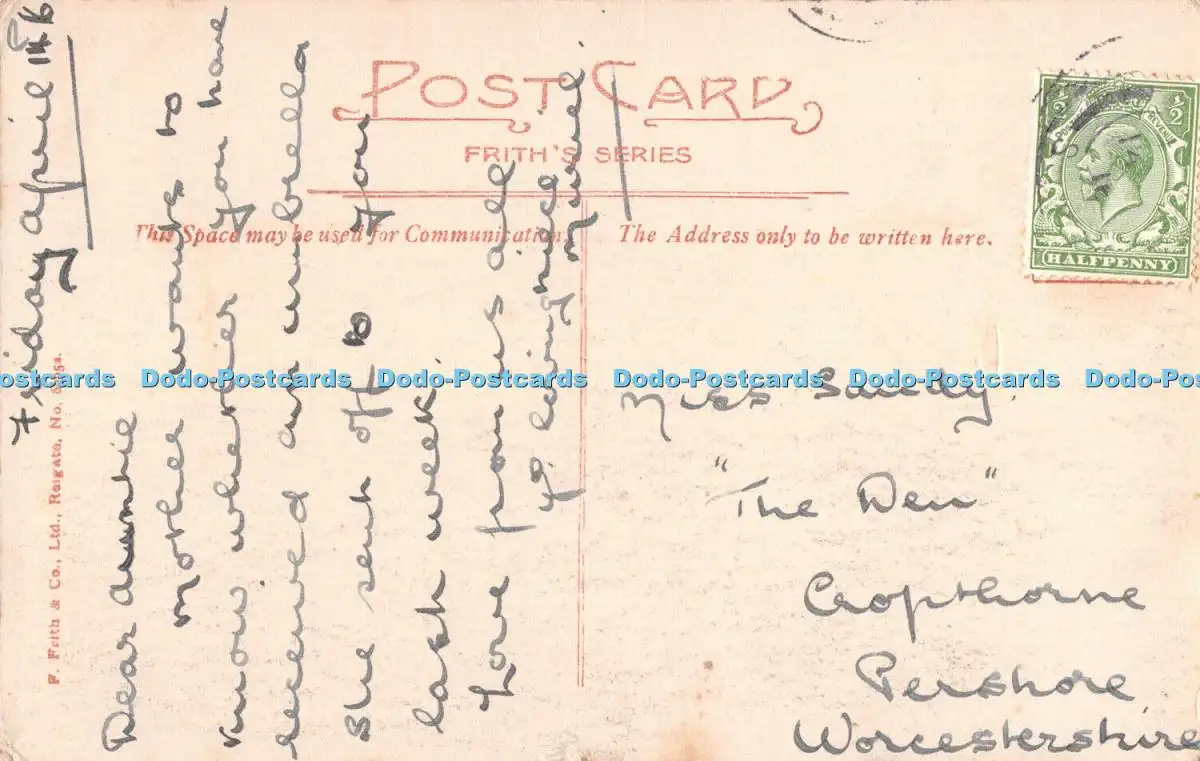 POST CARD
FRITH'S SERIES
This Space may be used for Communication.
The Address only to be written here.
½ ½
HALFPENNY
F. Frith & Co., Ltd., Reigate, No.
Friday april 14th
Dear auntie
Mother wants to
know whether you have
received an umbrella
She sent off to you
last week.
Love from us all
yr loving niece
Muriel.
Miss Sandy.
"The Den"
Cropthorne
Pershore
Worcestershire
Dodo-Postcards Dodo-Postcards Dodo-Postcards Dodo-Postcards Dodo-Postcards Dodo-Postcards